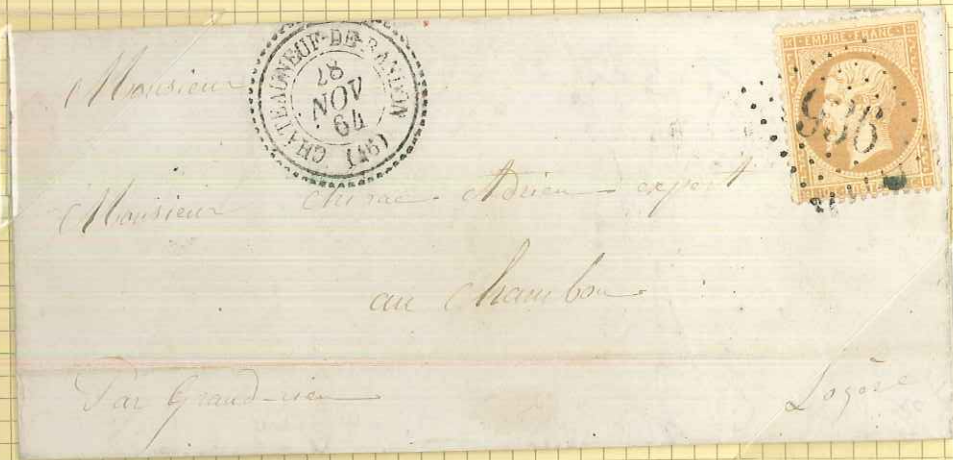 Monsieur
CHATEAUNEUF-DE-RANDON (46)
28
NOV
64
EMPIRE FRANC
936
Monsieur Chirac Adrien expert
au Chambon
Par Grand-rieu
Lozère